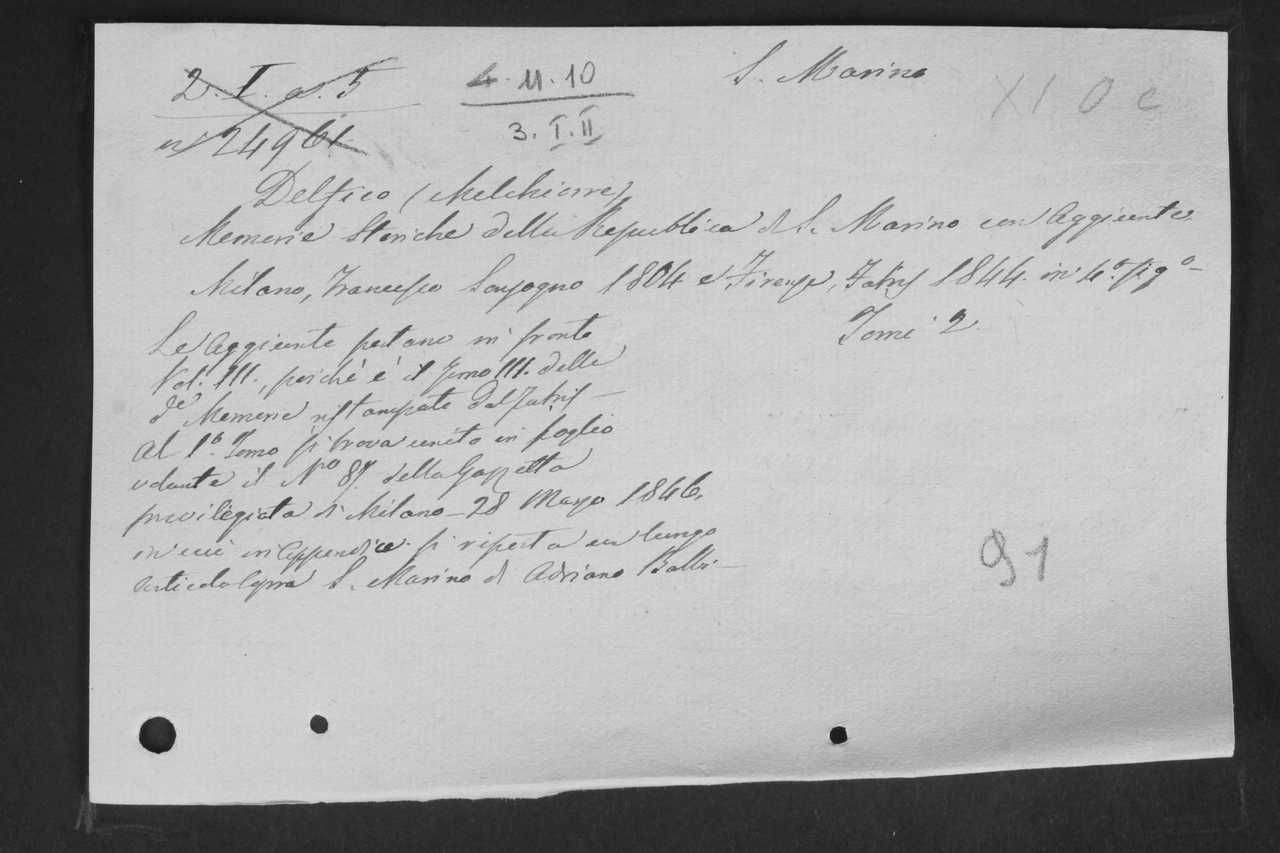 2. I. a. 5
n° 24961
4. 11. 10
3. I. II
S. Marino
XI O c
Delfico (Melchiorre)
Memorie Storiche della Repubblica di S. Marino con Aggiunte
Milano, Francesco Sonzogno 1804 e Firenze, Fabris 1844. in 4.° fig.°
Tomi 2.
Le Aggiunte portano in fronte
Vol. III., poiché è il Tomo III. delle
d.e Memorie ristampate dal Fabris —
Al 1.° Tomo si trova unito in foglio
volante il N.° 87. della Gazzetta
privilegiata di Milano — 28 Marzo 1846,
in cui in Appendice si riporta un lungo
articolo sopra S. Marino di Adriano Balbi —
91